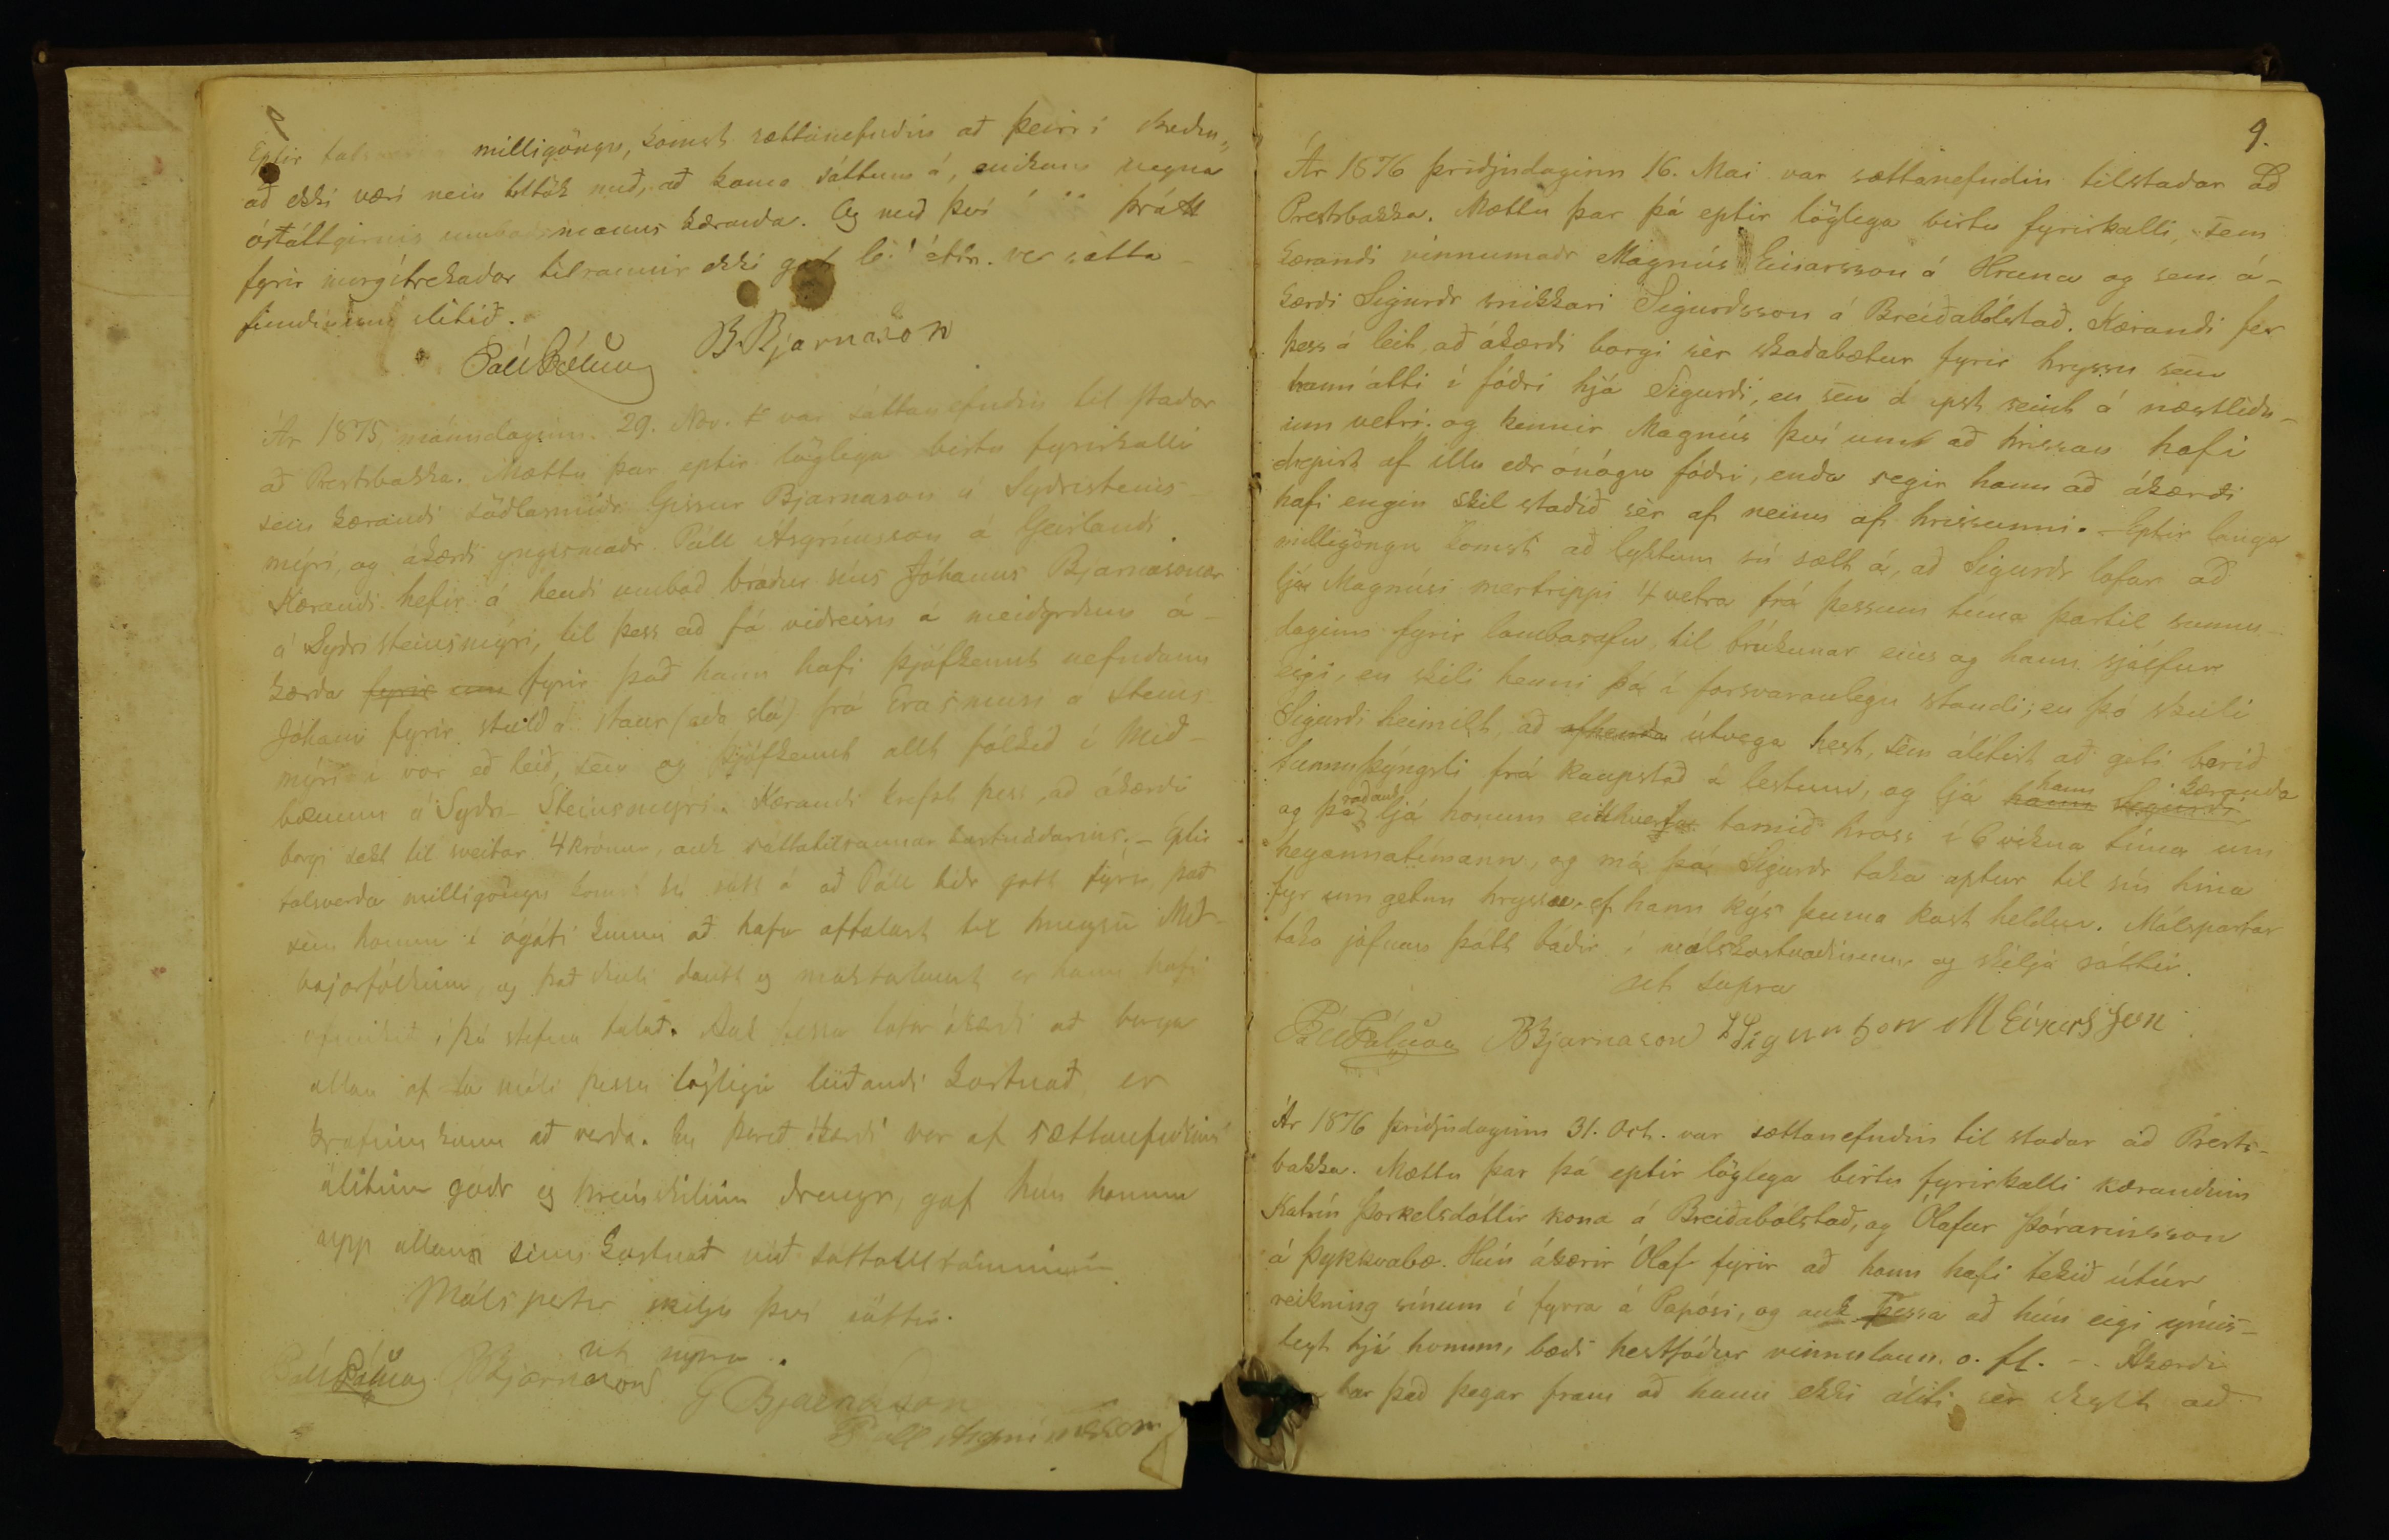 Eptir milligöngu, komst sættanefndin að þeirri
að ekki væri nein tiltök með, að koma sáttum á, einkum vegna
ósáttgirnis umboðsmanns kæranda. Og með því þrátt
fyrir margítrekaðar tilraunir ekki gat
fundinum slitið.
Páll Pálsson B. Bjarnason
Ár 1875 mánudaginn 29. Nov. var sáttanefndin til staðar
að Prestsbakka. Mættu þar eptir löglega birtu fyrirkalli
sem kærandi söðlasmiðr Gissur Bjarnason á Syðristeins-
mýri, og ákærði yngismaðr Páll Ásgrímsson á Geirlandi.
Kærandi hefir á hendi umboð bróður síns Jóhanns Bjarnasonar
á Syðristeinsmýri, til þess að fá viðreisn á meiðyrðum á-
kærða fyrir um fyrir það hann hafi þjófkennt nefndann
Jóhann fyrir stuld á staur (eða slá) frá Erasmusi á Steins-
mýri í vor eð leið, sem og þjófkennt allt fólkið í Mið-
bænum á Syðri-Steinsmýri. Kærandi krefst þess, að ákærði
borgi sekt til sveitar 4 krónur, auk sáttatilraunar kostnaðarins. - Eptir
talsverða milligöngu komst sú sátt á að Páll biðr gott fyrir það
sem honum í ógáti kunni að hafa aftalast til hneysu Mið-
bæjarfólkinu, og það skuli dautt og marklaust er hann hafi
ofmikið í þá stefnu talað. Auk þessa lofar ákærði að borga
allan af máli þessu löglega leiðandi kostnað, er
krafinn kann að verða. En þareð ákærði var af sættanefndinni
álitinn góðr og hreinskilinn drengr, gaf hún honum
upp allann sinn kostnað við sáttatilraunina
Málspartar skilja því sáttir.
ut supra.
Páll Pálsson BBjarnason G Bjarnason
Páll Asgrímsson
9.
Ár 1876 þriðjudaginn 16. Mai var sættanefndin tilstaðar að
Prestsbakka. Mættu þar þá eptir löglega birtu fyrirkalli, sem
kærandi vinnumaðr Magnús Einarsson á Hruna og sem á-
kærði Sigurðr snikkari Sigurðsson á Breiðabólstað. Kærandi fer
þess á leit, að ákærði borgi sér skaðabætur fyrir hryssu sem
hann átti í fóðri hjá Sigurði, en sem dapst seint á næstliðn-
um vetri. og kennir Magnús því um að hrissan hafi
drepist af illu eðr ónógu fóðri, enda segir hann að ákærði
hafi engin skil staðið sér af neinu af hrissunni. - Eptir langa
milligöngu komst að lyktum sú sætt á, að Sigurðr lofar að
ljá Magnúsi mertrippi 4 vetra frá þessum tíma þartil sunnu-
daginn fyrir lambarafu, til brúkunar eins og hann sjálfur
eigi, en skili henni þá í forsvaranlegu standi; en þó skuli
Sigurði heimilt, að afhenda útvega hest, sem álítist að geti borið
tunnuþýngsli frá kaupstað á lestum, og ljá hann hann Sigurði kæranda
og þá það auk ljá honum eitthvert tamið hross í 6 vikna tíma um
heyannatímann, og má þá Sigurðr taka aptur til sín hina
fyr umgetnu hryssu, ef hann kýs þenna kost heldur. Málspartar
taka jöfnum þátt báðir í málskostnaðinum og skilja sáttir.
ut supra
Páll Pálsson BBjarnason SSigurðson MEinarsson
Ár 1876 þriðjudaginn 31. Oct. var sættanefndin til staðar að Prests-
bakka. Mættu þar þá eptir löglega birtu fyrirkalli kærandinn
Katrín Þorkelsdóttir kona á Breiðabólstað, og Ólafur Þórarinsson
á Þykkvabæ. Hún ákærir Ólaf fyrir að hann hafi tekið útúr
reikning sínum í fyrra á Papósi, og auk þessa að hún eigi ýmis-
legt hjá honum, bæði hestfóður vinnulaun o. fl. - Ákærði
bar það þegar fram að hann ekki áliti sér skylt að